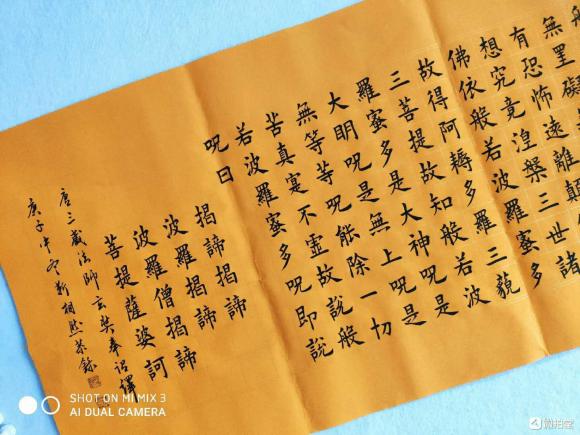 無罣礙
有恐怖遠離顛
想究竟涅槃三世諸
佛依般若波羅蜜多
故得阿耨多羅三藐
三菩提故知般若波
羅蜜多是大神呪是
大明呪是無上呪是
無等等呪能除一切
苦真寔不虛故說般
若波羅蜜多呪即說
呪曰
揭諦揭諦
波羅揭諦
波羅僧揭諦
菩提薩婆訶
唐三藏法師玄奘奉詔譯
庚子中冬靳相照恭錄
SHOT ON MI MIX 3
AI DUAL CAMERA
微拍堂